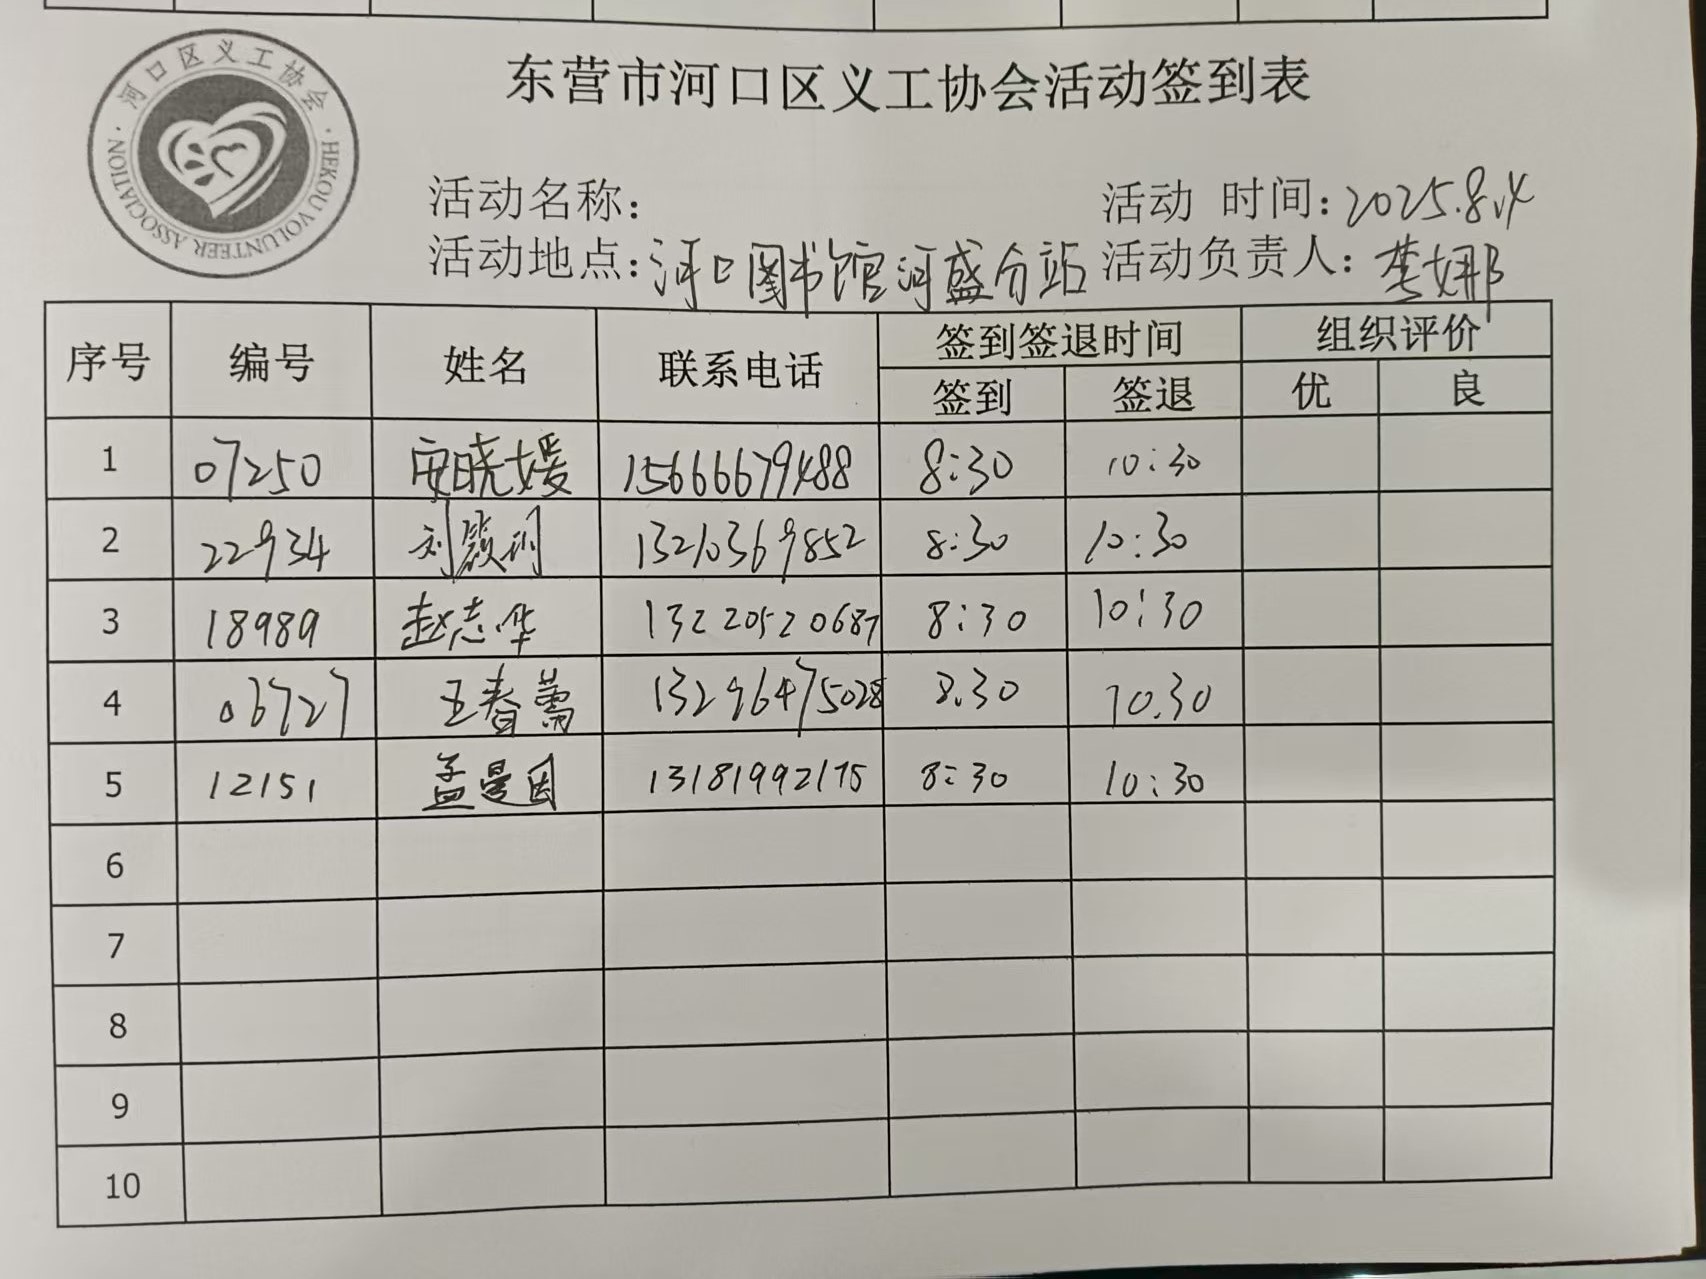 河口区义工协会
HEKOU VOLUNTEER ASSOCIATION
东营市河口区义工协会活动签到表
活动名称： 活动 时间：2025.8.4
活动地点：河口图书馆河盛分站 活动负责人：李娜
序号 编号 姓名 联系电话 签到签退时间 组织评价
签到 签退 优 良
1 07250 安晓媛 15666679488 8:30 10:30
2 22934 刘颖利 13210369852 8:30 10:30
3 18989 赵志华 13220520687 8:30 10:30
4 06727 王春蕾 13296475028 8.30 10.30
5 12151 孟曼因 13181992175 8:30 10:30
6
7
8
9
10